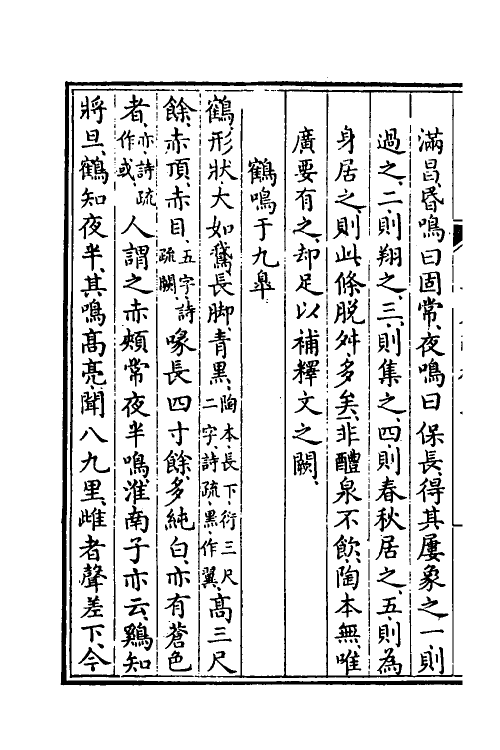 滿昌、昏鳴曰固常、夜鳴曰保長、得其屢象之一、則
過之、二、則翔之、三、則集之、四、則春秋居之、五、則為
身居之、則此條脫舛多矣、非醴泉不飲、陶本無、唯
廣要有之、却足以補釋文之闕、
鶴鳴于九臯
鶴、形狀大如鵞、長脚青黑、陶本長下衍三尺二字、詩疏黑作翼、高三尺
餘、赤頂、赤目、五字、詩疏闕、喙長四寸餘、多純白、亦有蒼色
者、亦、詩疏作或、人謂之赤頰、常夜半鳴、淮南子亦云、鷄知
將旦、鶴知夜半、其鳴高亮、聞八九里、雌者聲差下、今